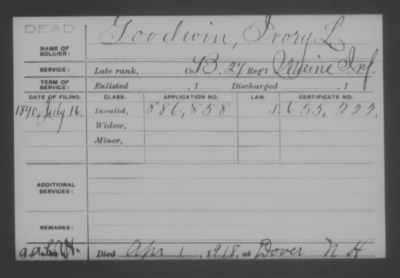 DEAD
Goodwin, Ivory L.
NAME OF SOLDIER:
SERVICE: Late rank, Co. B, 27 Reg't Maine Inf.
TERM OF SERVICE: Enlisted , 1 Discharged , 1
DATE OF FILING. CLASS. APPLICATION NO. LAW. CERTIFICATE NO.
1890, July 16. Invalid, 886,858
Widow,
Minor,
ADDITIONAL SERVICES:
REMARKS:
Died Apr 1, 1918, at Dover N H